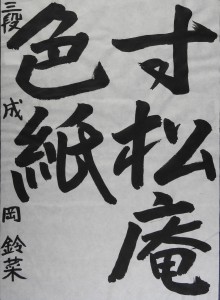 寸松庵
色紙
三段 成岡鈴菜